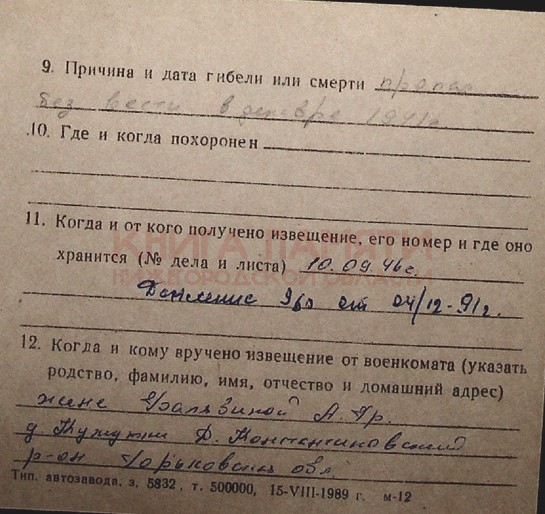 9. Причина и дата гибели или смерти пропал
без вести в декабре 1941г.
10. Где и когда похоронен
11. Когда и от кого получено извещение, его номер и где оно
хранится (№ дела и листа) 10.09.46г.
КНИГА ПАМЯТИ
НИЖЕГОРОДСКОЙ ОБЛАСТИ
от 04/12-91г.
12. Когда и кому вручено извещение от военкомата (указать
родство, фамилию, имя, отчество и домашний адрес)
жене А. Гр.
д. Д. Константиновский
р-он Горьковская обл.
Тип. автозавода, з. 5832, т. 500000, 15-VIII-1989 г. м-12